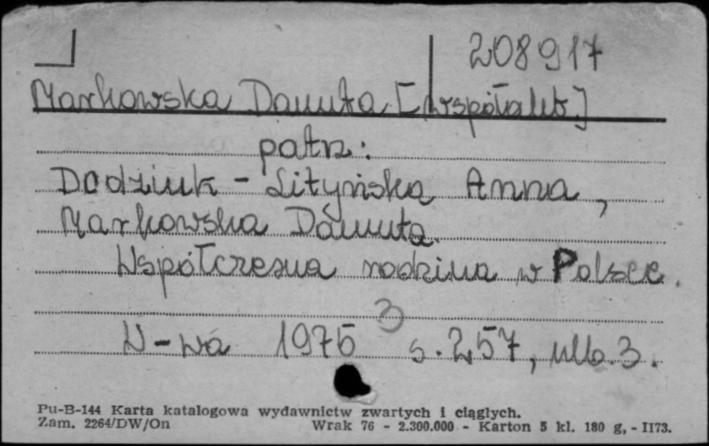 208917
Markowska Danuta [współaut.]
patrz:
Dodziuk - Lityńska Anna,
Markowska Danuta.
Współczesna rodzina w Polsce.
3
W-wa 1975 s. 257, nlb. 3.
Pu-B-144 Karta katalogowa wydawnictw zwartych i ciągłych.
Zam. 2264/DW/On Wrak 76 - 2.300.000 - Karton 5 kl. 180 g, - II73.